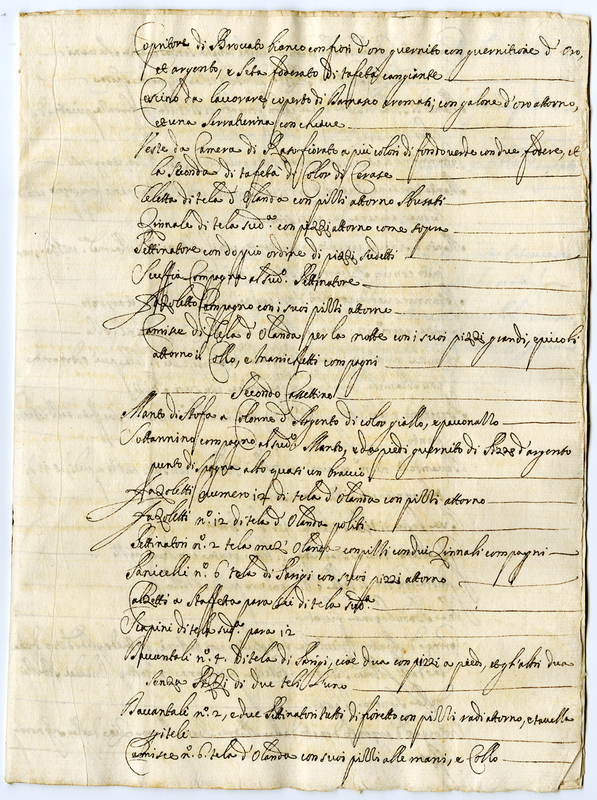 Copritore di Brocato bianco con fiori d'oro guernito con guernitione d'Oro,
et argento, e Seta foderato di tafetà cangiante
Coscino da lavorare coperto di Damasco cremesi, con galone d'oro attorno,
et una Serraturina con chiave
Veste da Camera di Raso fiorato a più colori di fondo verde con due fodere, et
la Seconda di tafetà di Color di Cerase
di tela d'Olanda con pizzi attorno
Zinnale di tela sud.ª con pizzi attorno come sopra
Pettinatore con doppio ordine di pizzi sudetti
Scuffia Compagna al sud.º Pettinatore
Fazoletto Compagno con i suoi pizzi attorno
Camise di Tela d'Olanda per la notte con i suoi pizzi grandi, e piccoli
attorno il Collo, e manichetti compagni
Secondo Cassettino
Manto di Stofa a Colonne d'Argento di color giallo, e pavonazzo
Sottannino compagno al sud.º Manto, e da piedi guernito di Pizzo d'argento
punto di Spagna alto quasi un braccio
Fazoletti numero 12 di tela d'Olanda con pizzi attorno
Fazoletti n.º 12 di tela d'Olanda politi
Pettinatori n.º 2 tela mezz'Olanda con pizzi con due Zinnali compagni
Panicelli n.º 6 tela di Parigi con suoi pizzi attorno
Calzetti a Staffetta para sei di tela sud.ª
Scapini di tela sud.ª para 12
n.º 4. di tela di Parigi, cioè dua con pizzi a piedi, et gl'altri dua
senza Pizzi di due teli l'uno
n.º 2, e due Pettinatori tutti di fioretto con pizzi radi attorno, e
Camise n.º 6. tela d'Olanda con suoi pizzi alle mani, e Collo